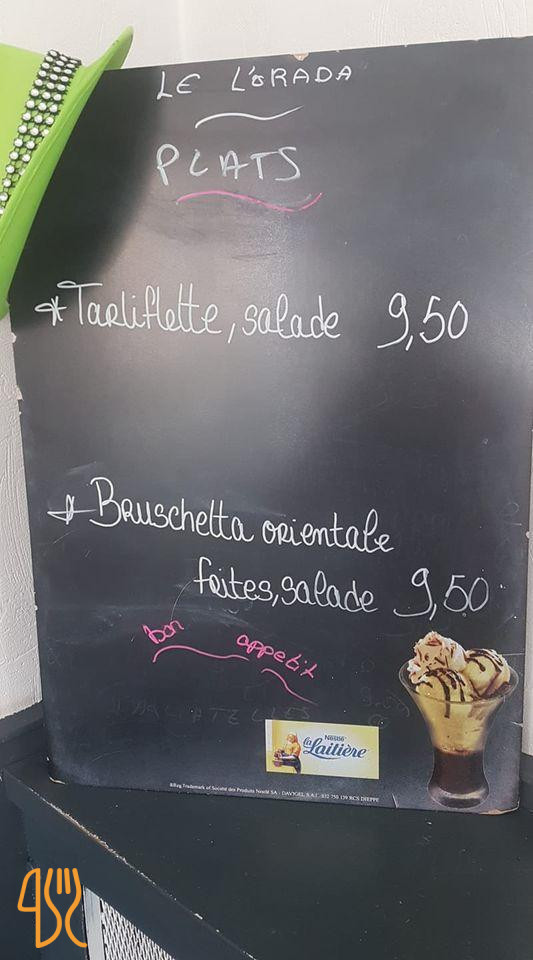 LE L'ORADA
PLATS
*Tartiflette, salade 9,50
*Bruschetta orientale
frites, salade 9,50
bon appetit
Nestlé
la Laitière
®Reg Trademark of Société des Produits Nestlé SA - DAVIGEL S.A.S. 832 750 139 RCS DIEPPE